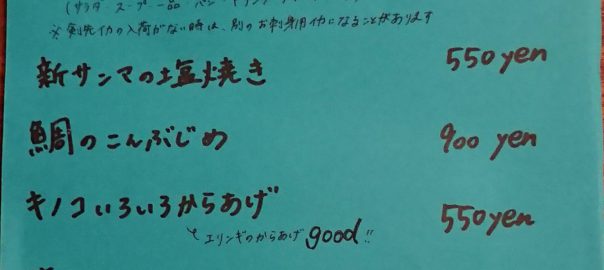 (サラダ・スープ・一品・パン・ドリンク
※剣先イカの入荷がない時は、別のお刺身用イカになることがあります
新サンマの塩焼き 550yen
鯛のこんぶじめ 900 yen
キノコいろいろからあげ 550yen
エリンギのからあげ good!!